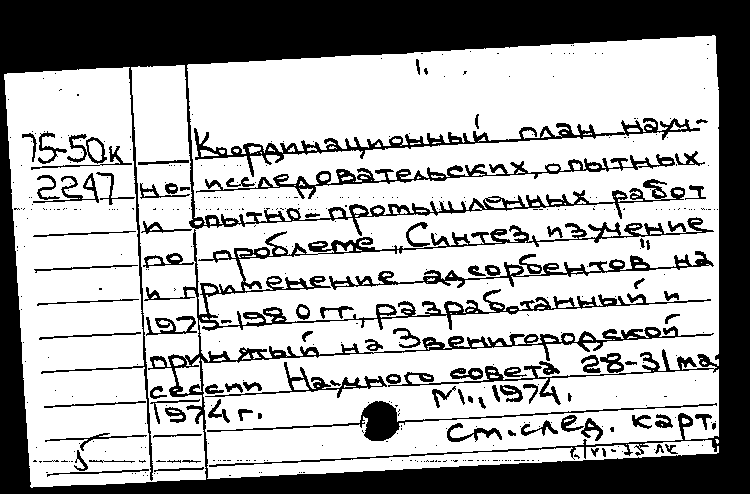 1.
75-50к
2247
Координационный план науч-
но-исследовательских, опытных
и опытно-промышленных работ
по проблеме „Синтез, изучение
и применение адсорбентов" на
1975-1980 гг., разработанный и
принятый на Звенигородской
сессии Научного совета 28-31 мая
1974 г. М., 1974.
см. след. карт.
5